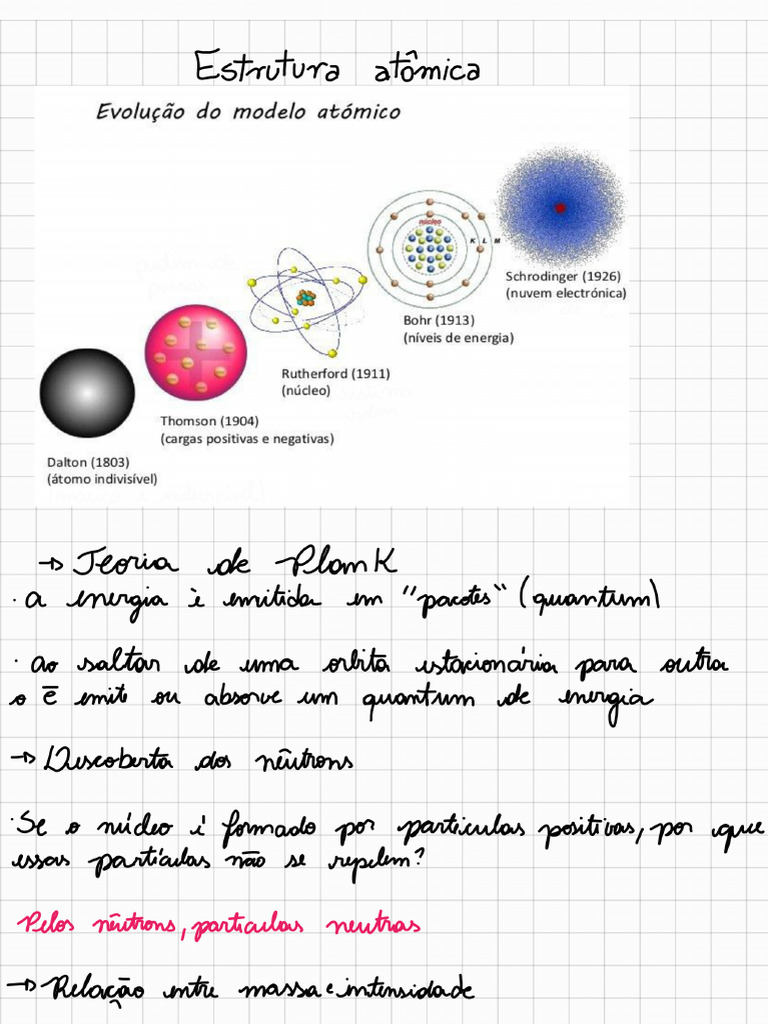 Estrutura atômica
Evolução do modelo atómico
Schrodinger (1926)
(nuvem electrónica)
núcleo
K L M
Bohr (1913)
(níveis de energia)
Rutherford (1911)
(núcleo)
Thomson (1904)
(cargas positivas e negativas)
Dalton (1803)
(átomo indivisível)
→ Teoria de Plank
· a energia è emitida em "pacotes" (quantum)
· ao saltar de uma orbita estacionária para outra
o ē emite ou absorve um quantum de energia
→ Descoberta dos nêutrons
· Se o núcleo é formado por particulas positivas, por que
essas partículas não se repelem?
Pelos nêutrons, particulas neutras
→ Relação entre massa e intensidade